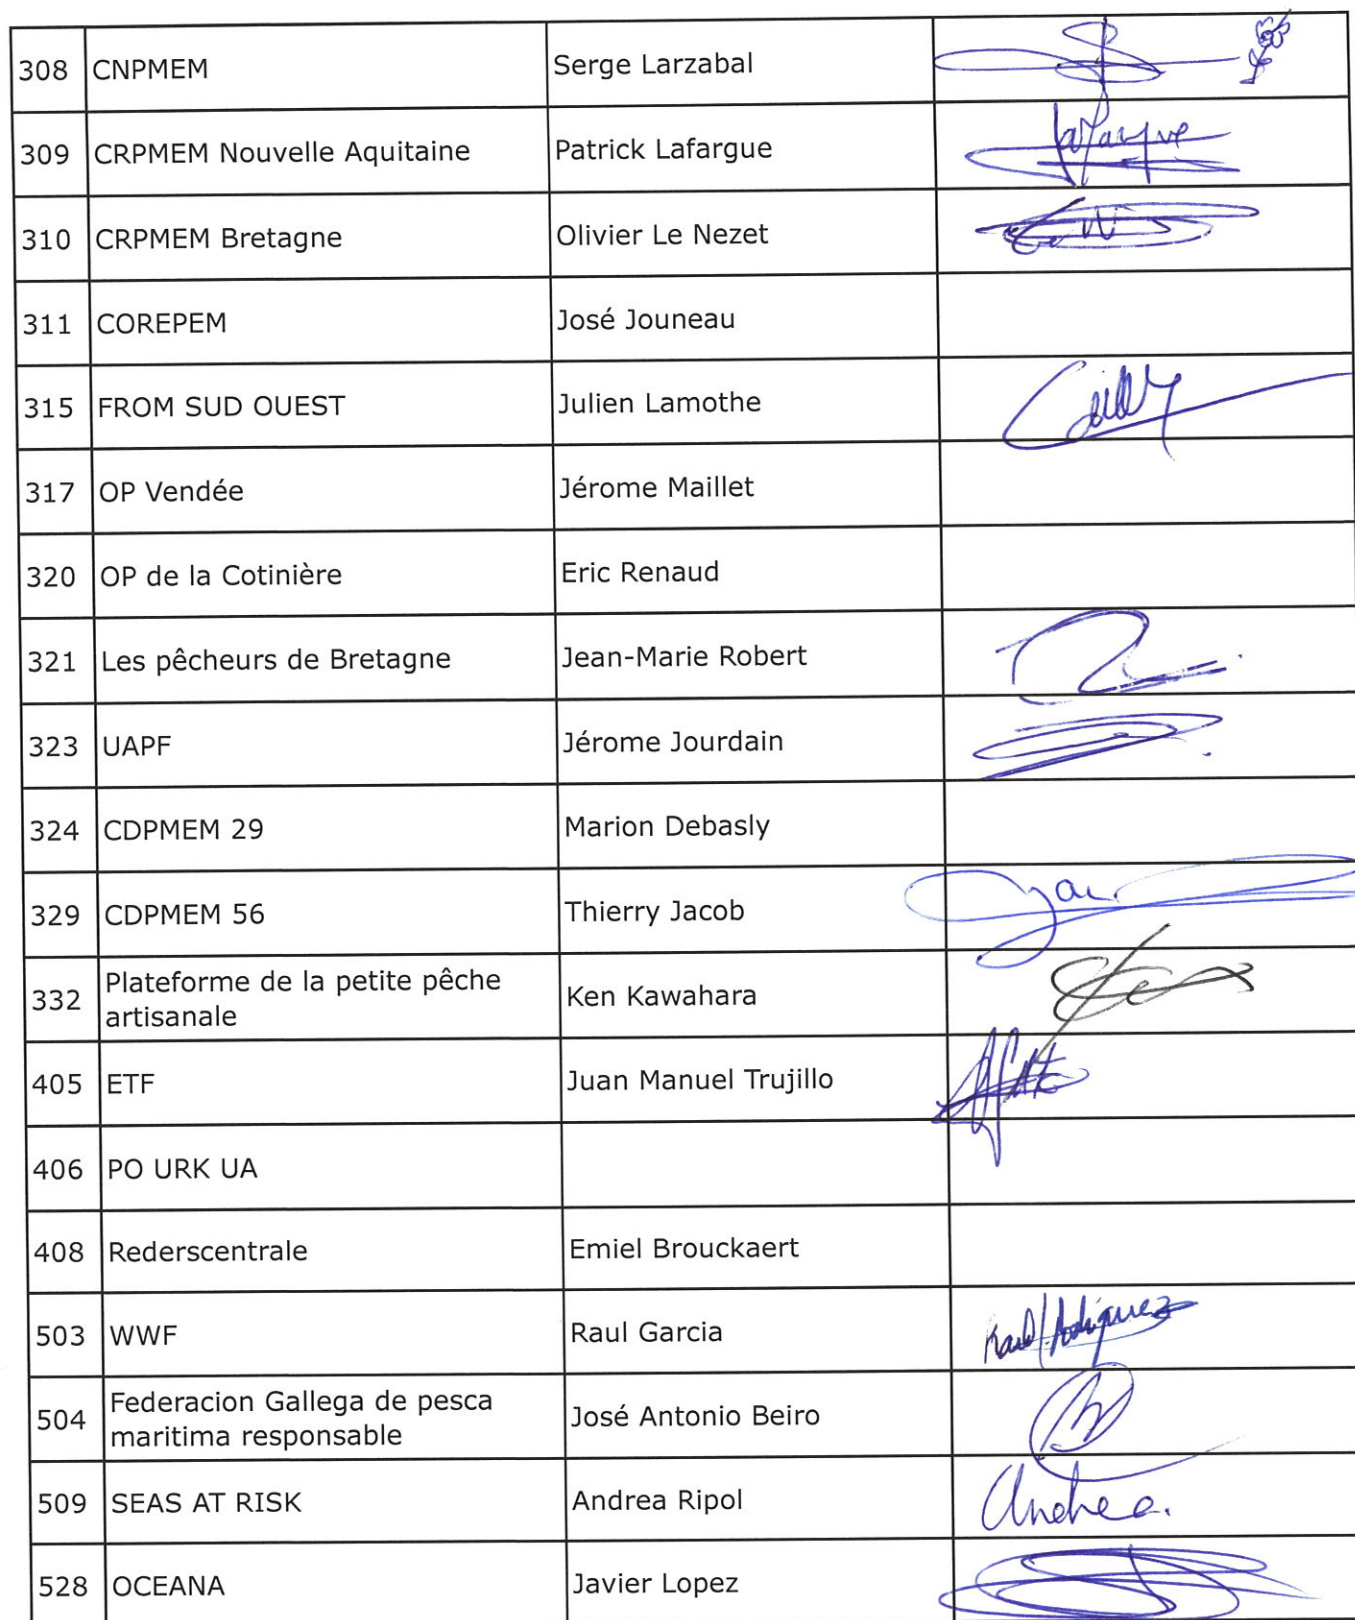 308 CNPMEM Serge Larzabal
309 CRPMEM Nouvelle Aquitaine Patrick Lafargue Lafargue
310 CRPMEM Bretagne Olivier Le Nezet
311 COREPEM José Jouneau
315 FROM SUD OUEST Julien Lamothe
317 OP Vendée Jérome Maillet
320 OP de la Cotinière Eric Renaud
321 Les pêcheurs de Bretagne Jean-Marie Robert
323 UAPF Jérome Jourdain
324 CDPMEM 29 Marion Debasly
329 CDPMEM 56 Thierry Jacob
332 Plateforme de la petite pêche
artisanale Ken Kawahara
405 ETF Juan Manuel Trujillo
406 PO URK UA
408 Rederscentrale Emiel Brouckaert
503 WWF Raul Garcia Raul Rodriguez
504 Federacion Gallega de pesca
maritima responsable José Antonio Beiro
509 SEAS AT RISK Andrea Ripol Andrea.
528 OCEANA Javier Lopez